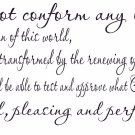 ot conform any
n of this world,
transformed by the renewing of
l be able to test and approve what
l, pleasing and perf